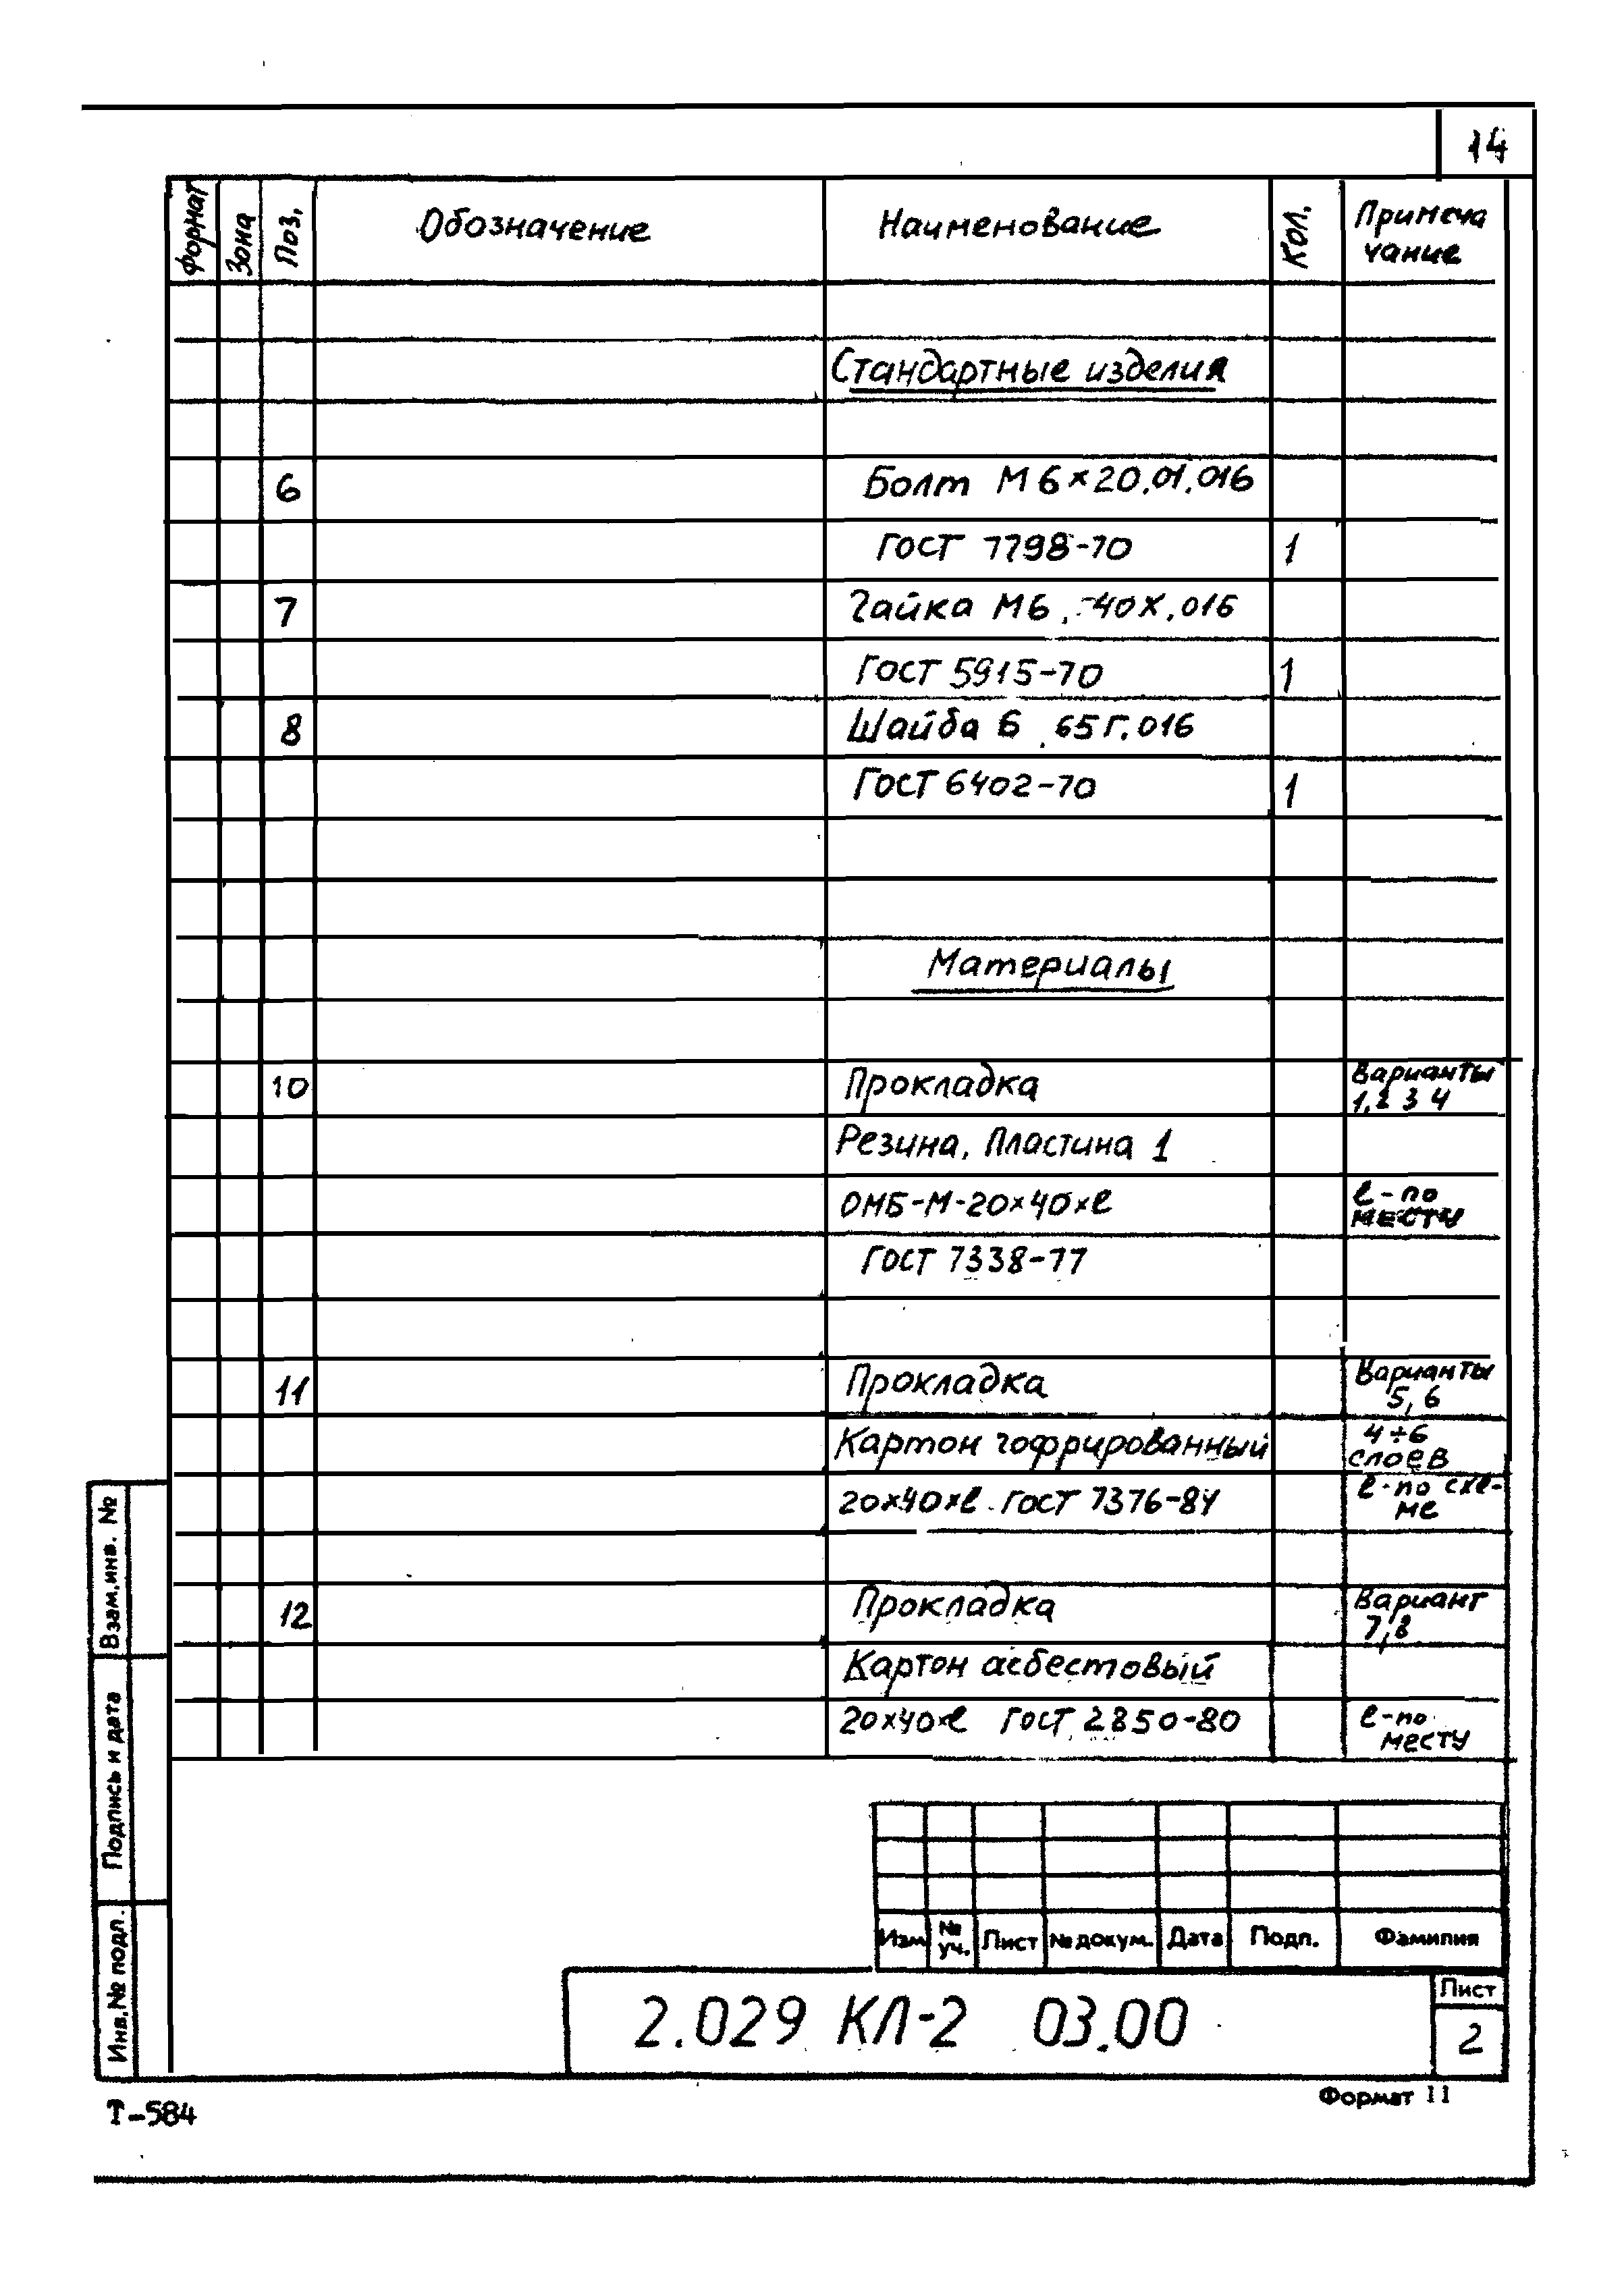 14
Формат Зона Поз. Обозначение Наименование Кол. Примеча
чание
Стандартные изделия
6 Болт М6×20.01.016
ГОСТ 7798-70 1
7 Гайка М6. -40Х.016
ГОСТ 5915-70 1
8 Шайба 6.65Г.016
ГОСТ 6402-70 1
Материалы
10 Прокладка Варианты
1,2 3 4
Резина, Пластина 1
ОМБ-М-20×40×ℓ ℓ-по
месту
ГОСТ 7338-77
11 Прокладка Варианты
5,6
Картон гофрированный 4÷6
слоев
20×40×ℓ ГОСТ 7376-84 ℓ-по схе-
ме
12 Прокладка Вариант
7,8
Картон асбестовый
20×40×ℓ ГОСТ 2850-80 ℓ-по
месту
Взам.инв. №
Подпись и дата
Инв.№ подл.
Изм № уч. Лист № докум. Дата Подп. Фамилия
2.029 КЛ-2 03.00
Лист
2
Формат 11
Т-584